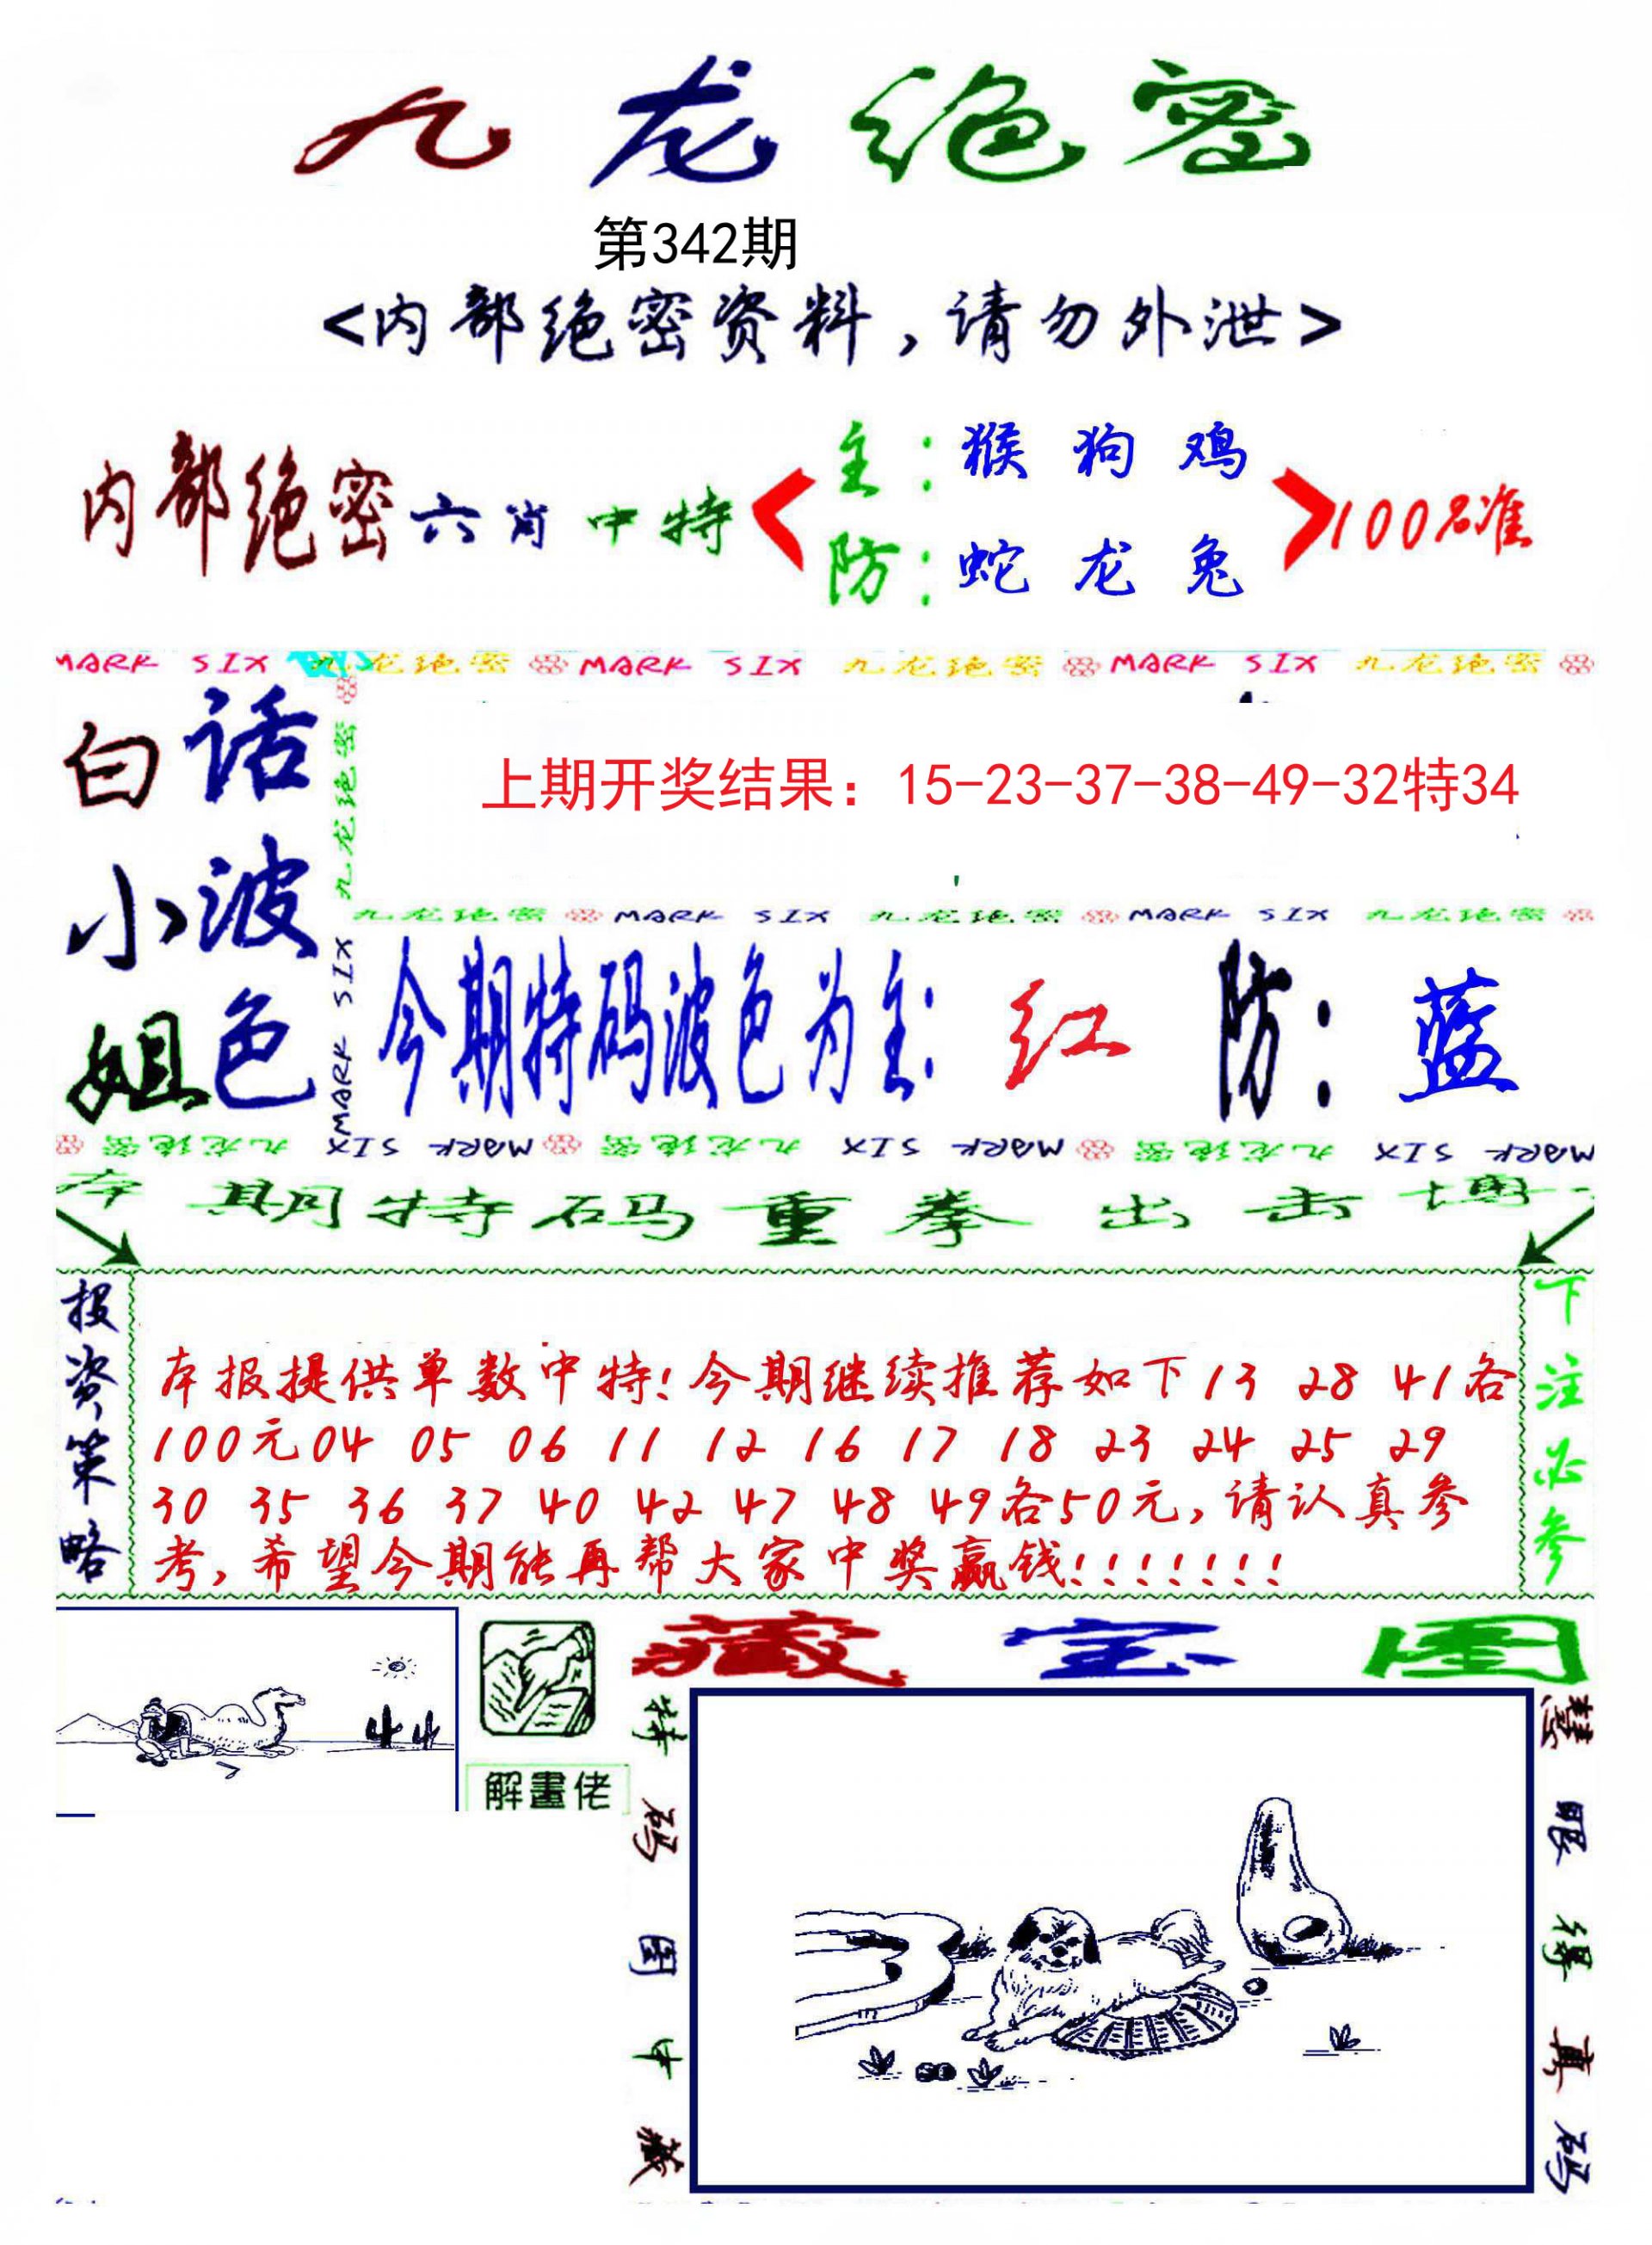 九龙绝密
第342期
<内部绝密资料，请勿外泄>
内部绝密六肖中特
主：猴 狗 鸡
防：蛇 龙 兔
100%准
MARK SIX 九龙绝密 MARK SIX 九龙绝密 MARK SIX 九龙绝密
白小姐
话波色
九龙绝密
MARK SIX
上期开奖结果：15-23-37-38-49-32特34
九龙绝密 MARK SIX 九龙绝密 MARK SIX 九龙绝密
今期特码波色为主：红 防：蓝
九龙绝密 MARK SIX 九龙绝密 MARK SIX 九龙绝密 MARK SIX
本期特码重拳出击博
投资策略
本报提供单数中特!今期继续推荐如下13 28 41各
100元04 05 06 11 12 16 17 18 23 24 25 29
30 35 36 37 40 42 47 48 49各50元,请认真参
考,希望今期能再帮大家中奖赢钱!!!!!!!
下注必参
解畫佬
藏宝图
特码图中藏
慧眼得真码